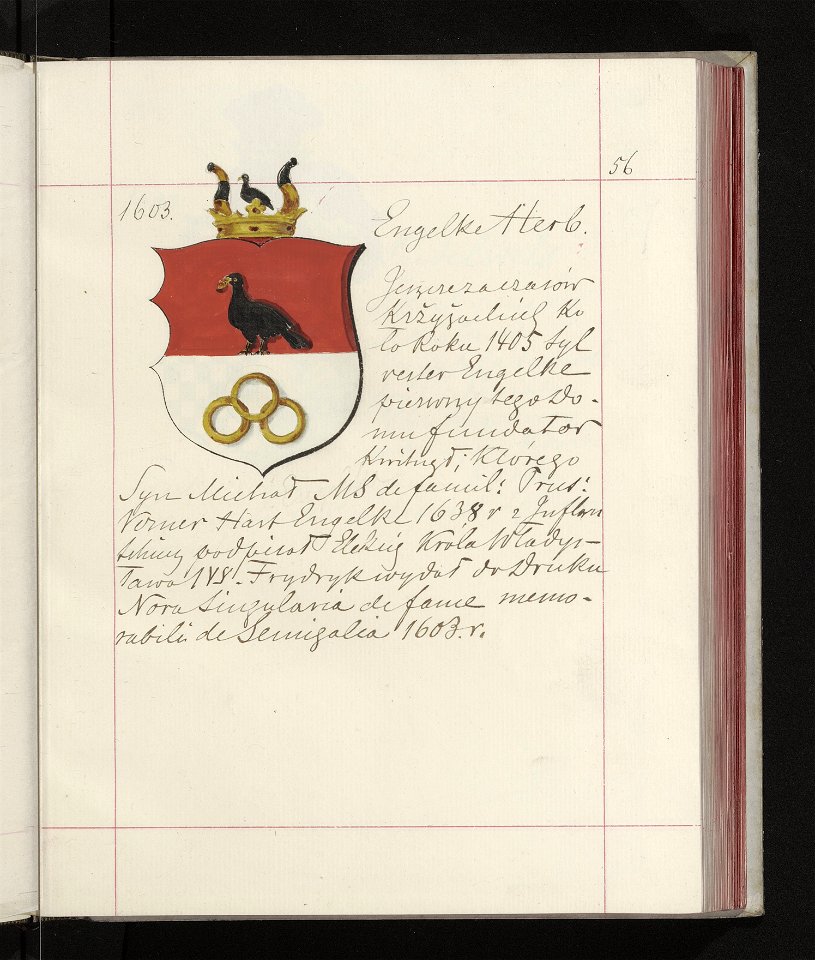 56
1603.
Engelke Herb.
Jeszcze za czasów
Krżyżackich Ko
ło Roku 1405 Syl
vester Engelke
pierwny tego Do-
mu fundator
Kwitnął; Którego
Syn Michał MS de famil: Prus:
Verner Hart Engelke 1638 r z Inflan
podpisał Elekcię Króla Władys-
ława IVS. Frydryk wydał do Druku
Nova Singularia de fame memo-
rabili de Semigalia 1603. r.